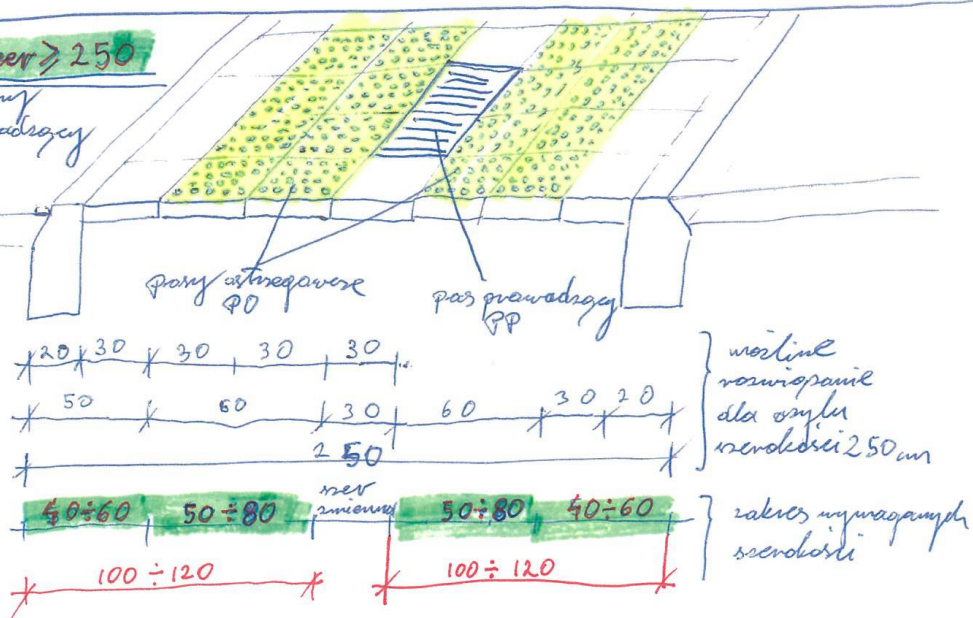 szer ⩾ 250
pasy ostrzegawcze
PO
pas prowadzący
PP
20 30 30 30 30
50 60 30 60 30 20
250
możliwe
rozwiązanie
dla azylu
szerokości 250 cm
40÷60 50÷80 szer
zmienna 50÷80 40÷60
zakres wymaganych
szerokości
100÷120 100÷120